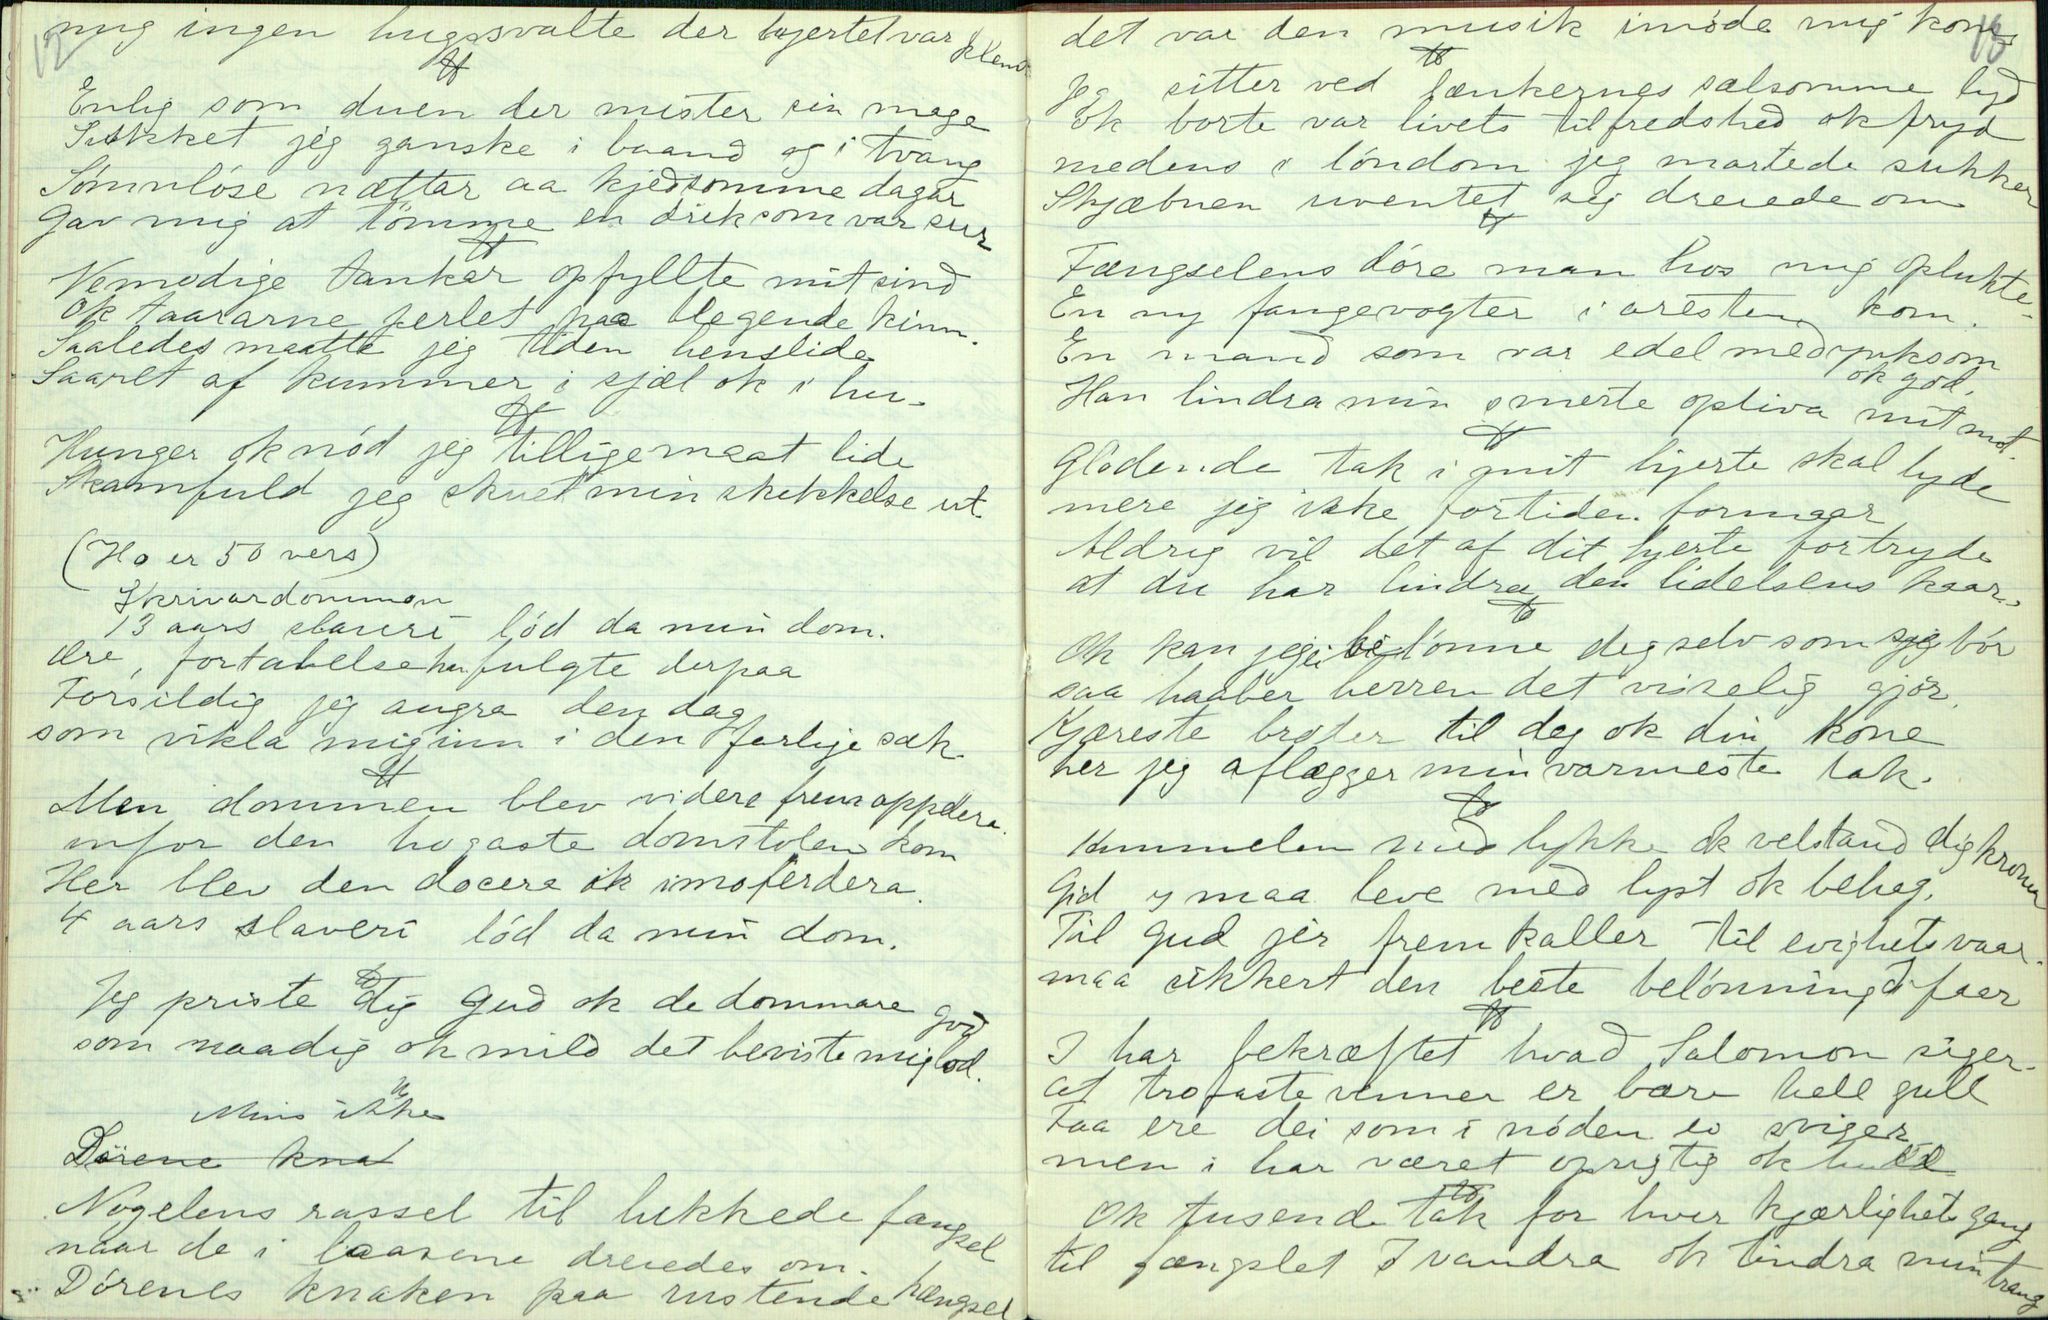 12
mig ingen hugsvalte der hjertet var klemt
Enlig som duen der mister sin mage
Sukket jeg ganske i baand og i tvang
Sómnlóse nættar aa kjedsomme dagar
Gav mig at tómme en drik som var sur
Vemodige tankar opfyllte mit sind
ok taararne perlet paa blegende kinn.
Saaledes maatte jeg tiden henslide
Saaret af kummer i sjæl ok i hu.
Hunger ok nód jeg tillige maat lide
Skamfuld jeg skuet min skikkelse ut.
(Ho er 50 vers)
Skrivardommen
13 aars slaveri lód da min dom.
ære, fortabelse har fulgte derpaa
Forsildig jeg angra den dag
som vikla mig inn i den farlige sak.
Men dommen blev videre frem appelera.
infor den hogaste domstolen kom
Her blev den docera ok
4 aars slaveri lód da min dom.
Jeg priste dig Gud ok de dommare god
som naadig ok mild det beviste mig lod.
Mins ikke
Dórene kna
Nogelens rassel til lukkede fangsel
naar de i laasene dreiedes om.
Dórenes knaken paa rustende hængsel
13
det var den musik imóde mig kom
Jeg sitter ved lænkernes sælsomme lyd
ok borte var livets tilfredshed ok fryd
medens i lóndom jeg martede sukker
Skjæbnen uventet sig dreiede om
Fængselens dóre man hos mig oplukte
En ny fangevogter i aresten kom.
En mand som var edel medynksom
ok god.
Han lindra min smerte opliva mit mot.
Glódende tak i mit hjerte skal lyde
mere jeg ikke for tiden formaar
Aldrig vil det af dit hjerte fortryde
at du har lindra den lidelsens kaar.
Ok kan jeg ei belónne deg selv som jeg bór
saa haaber herren det visselig gjór.
Kjæreste broder til deg ok din kone
her jeg aflægger min varmeste tak.
Himmelen med lykke ok velstand dig krone
Gid I maa leve med lyst ok behag.
Til Gud jer frem kaller til evighets vaar.
maa sikkert den beste belónning I faar
I har bekræftet hvad Salomon siger.
at trofaste venner er bære hell gull
Faa ere dei som i nóden ei sviger
men i har været oprigtig ok huld
Ok tusende tak for hver kjærlighets gang
til fængslet I vandra ok lindra min trang